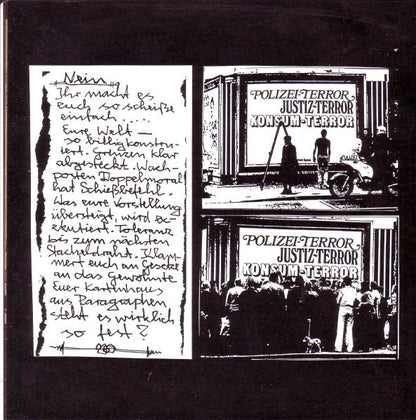 „Nein“
Ihr macht es
euch so scheiße
einfach.....
Eure Welt —
so billig konstru-
iert. Grenzen klar
abgesteckt. Wach-
posten Doppelmoral
hat Schießbefehl.
Was eure Vorstellung
übersteigt, wird ex-
ekutiert. Toleranz
bis zum nächsten
Stacheldraht. Klam-
mert euch an Gesetze
an das Gewohnte
Euer Kartenhaus
aus Paragraphen
steht es wirklich
so fest?
POLIZEI-TERROR,
JUSTIZ-TERROR
KONSUM-TERROR
POLIZEI-TERROR,
JUSTIZ-TERROR
KONSUM-TERROR